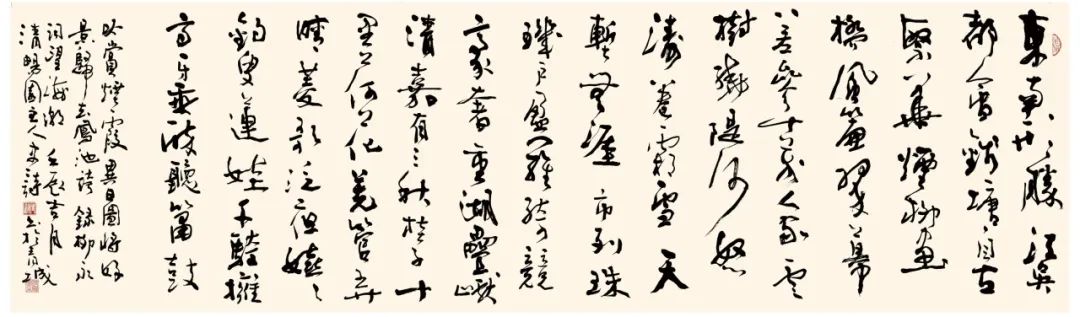 東南形勝江吳
都會錢塘自古
繁華煙柳畫
橋風簾翠幕
參差十萬人家雲
樹繞隄沙怒
濤卷霜雪天
塹無涯市列珠
璣戶盈羅綺競
豪奢重湖疊巘
清嘉有三秋桂子十
里荷花羌管弄
晴菱歌泛夜嬉嬉
釣叟蓮娃千騎擁
高牙乘醉聽簫鼓
吟賞煙霞異日圖將好
景歸去鳳池誇錄柳永
詞望海潮壬辰吉月
園主人詩書於青城